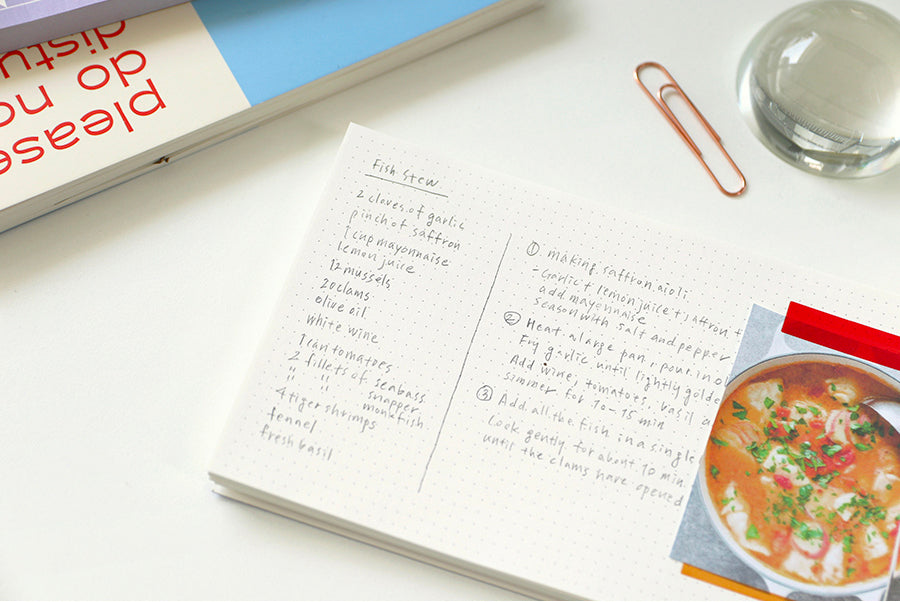 please
do no
distu
Fish Stew
2 cloves of garlic
pinch of saffron
1 cup mayonnaise
lemon juice
12 mussels
20 clams
olive oil
white wine
1 can tomatoes
2 fillets of seabass
" " snapper
" " monkfish
4 tiger shrimps
fennel
fresh basil
① making saffron aioli
- Garlic + lemon juice + saffron +
add mayonnaise
season with salt and pepper
② Heat a large pan, pour in ol
Fry garlic until lightly golde
Add wine, tomatoes, basil a
simmer for 10-15 min
③ Add all the fish in a single
Cook gently for about 10 min.
until the clams have opened